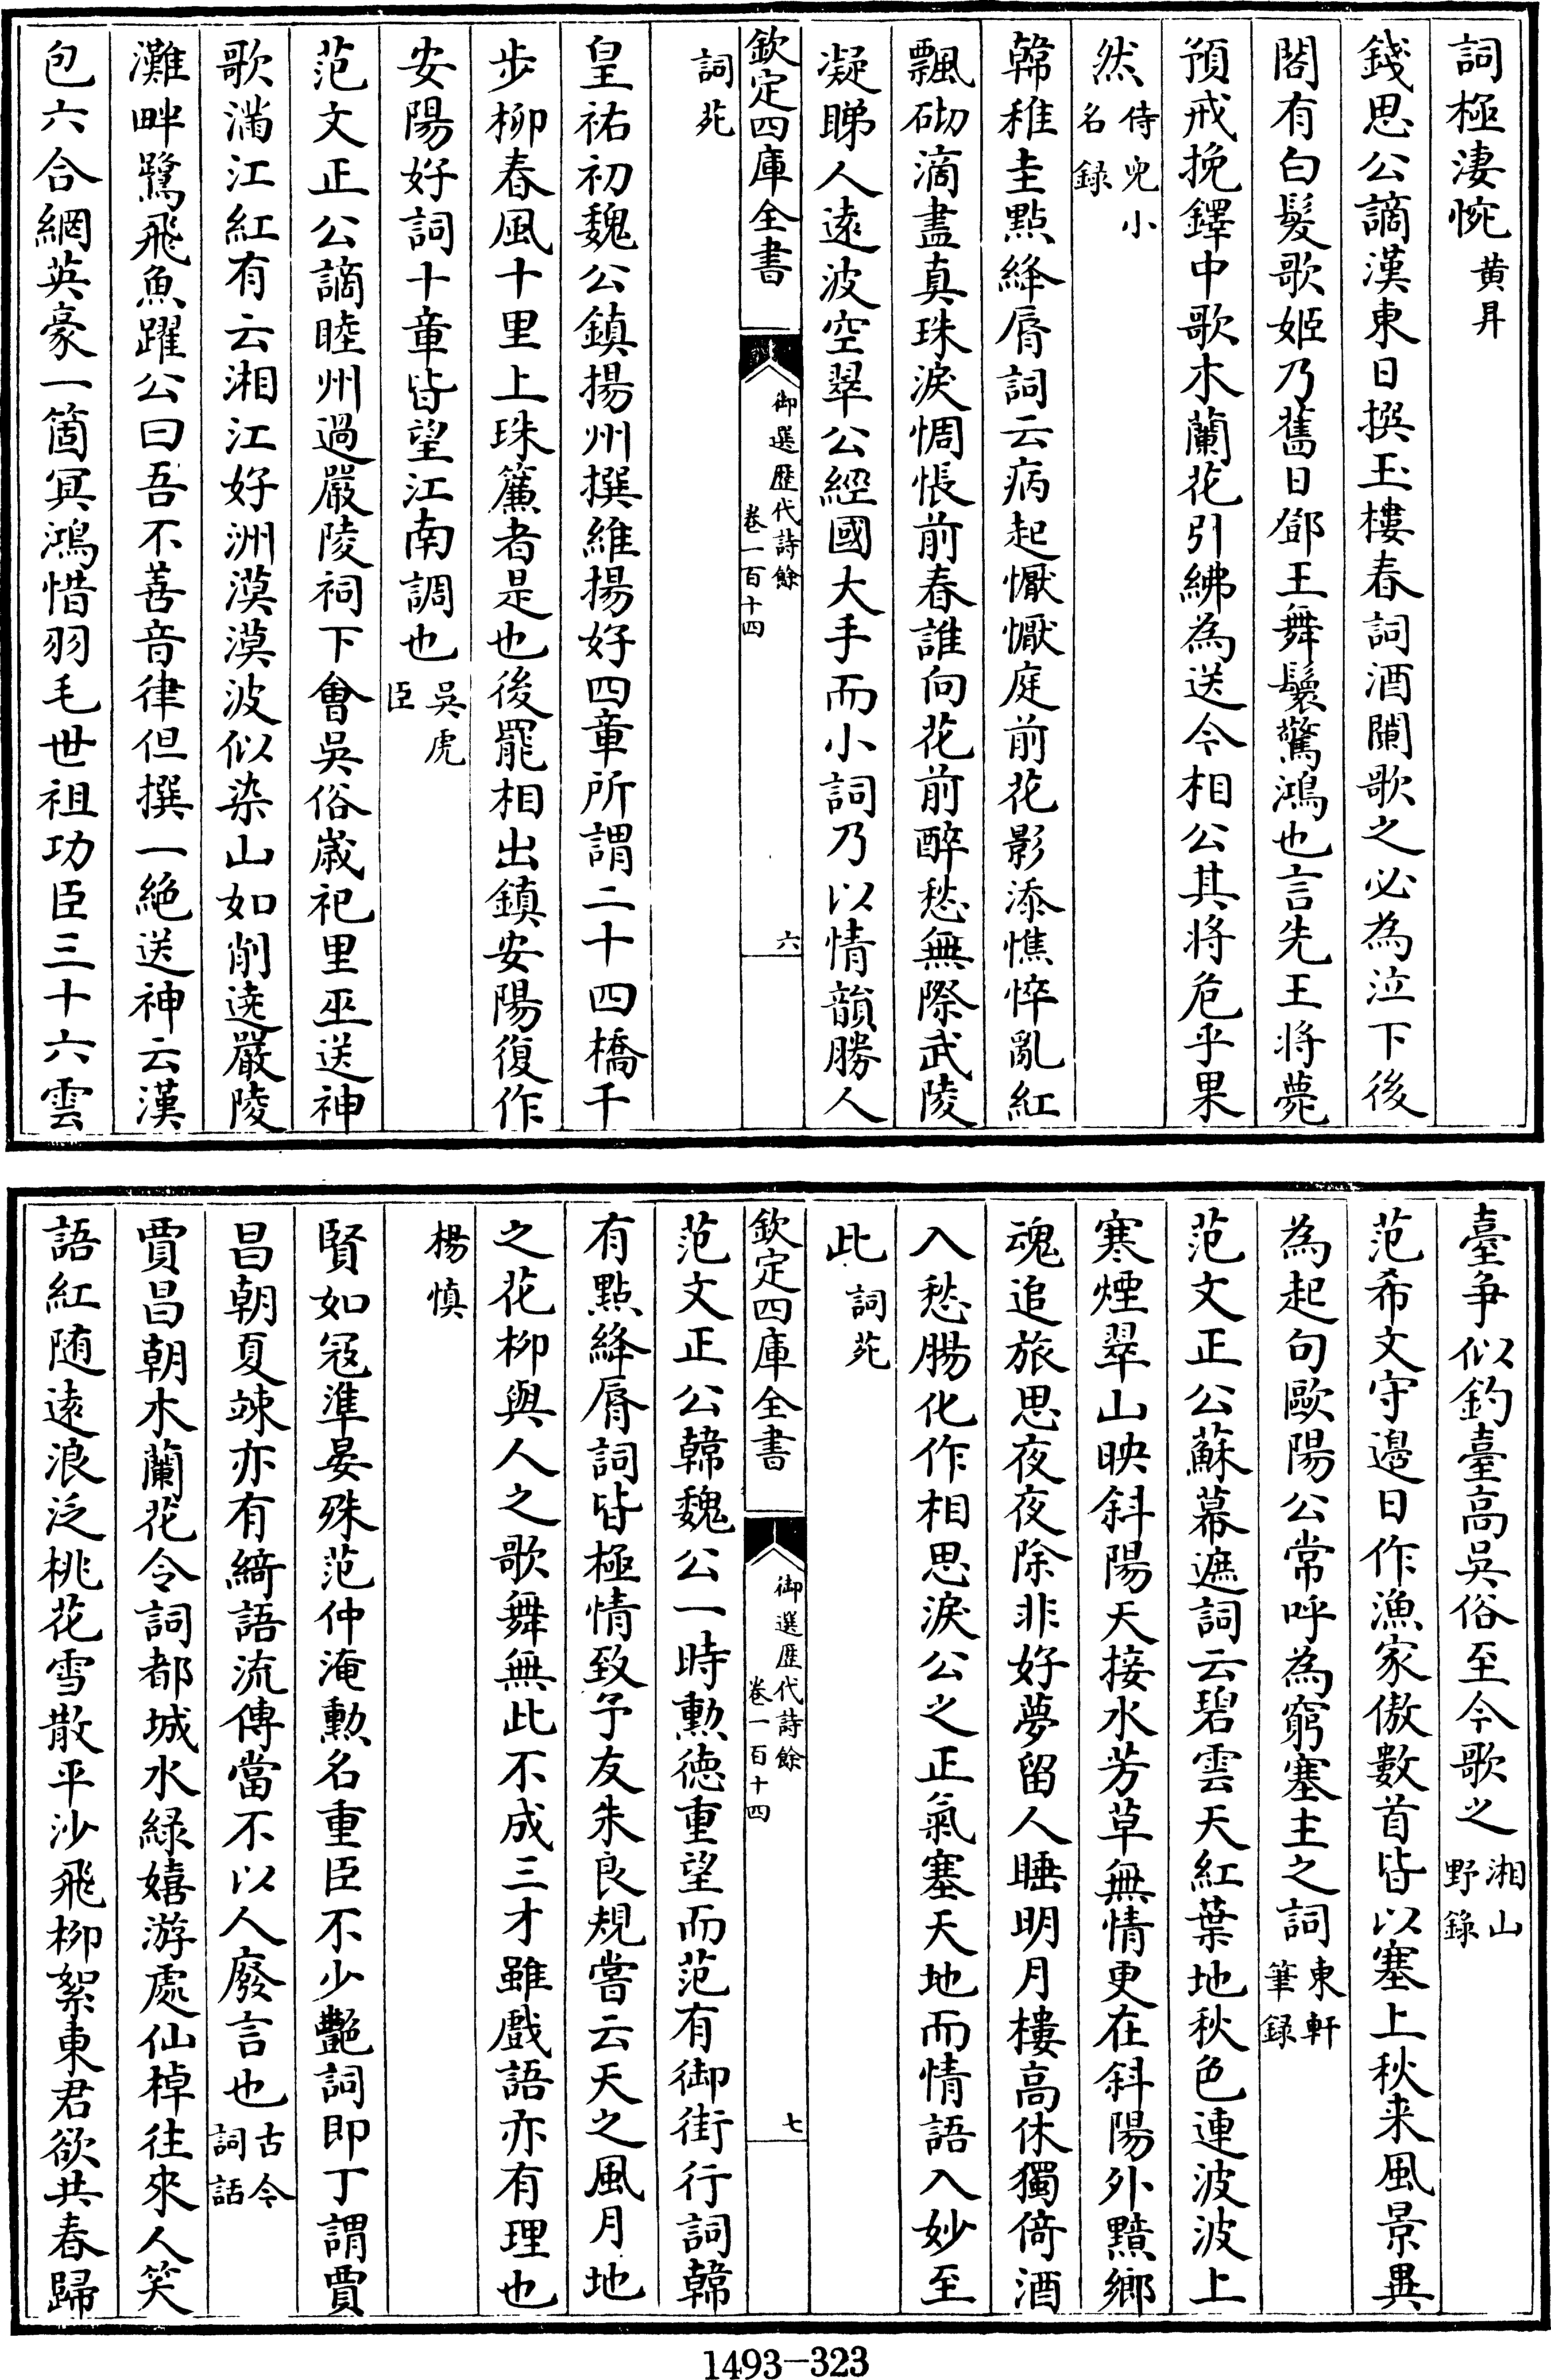 詞極淒惋黄昇
錢思公謫漢東日撰玉樓春詞酒闌歌之必為泣下後
閤有白髮歌姬乃舊日鄧王舞鬟驚鴻也言先王將薨
預戒挽鐸中歌木蘭花引紼為送今相公其将危乎果
然侍兒小名錄
韓稚圭點絳脣詞云病起懨懨庭前花影添憔悴亂紅
飄砌滴盡真珠淚惆悵前春誰向花前醉愁無際武陵
凝睇人遠波空翠公經國大手而小詞乃以情韻勝人
詞苑
欽定四庫全書
御選歷代詩餘
卷一百十四
六
皇祐初魏公鎮揚州撰維揚好四章所謂二十四橋千
步柳春風十里上珠簾者是也後罷相出鎮安陽復作
安陽好詞十章皆望江南調也吳虎臣
范文正公謫睦州過嚴陵祠下會吳俗歲祀里巫送神
歌滿江紅有云湘江好洲漠漠波似染山如削遶嚴陵
灘畔鷺飛魚躍公曰吾不善音律但撰一絶送神云漢
包六合網英豪一箇冥鴻惜羽毛世祖功臣三十六雲
臺爭似釣臺高吳俗至今歌之湘山野錄
范希文守邊日作漁家傲數首皆以塞上秋来風景異
為起句歐陽公常呼為窮塞主之詞東軒筆録
范文正公蘇幕遮詞云碧雲天紅葉地秋色連波波上
寒煙翠山映斜陽天接水芳草無情更在斜陽外黯鄉
魂追旅思夜夜除非好夢留人睡明月樓高休獨倚酒
入愁腸化作相思淚公之正氣塞天地而情語入妙至
此詞苑
欽定四庫全書
御選歷代詩餘
卷一百十四
七
范文正公韓魏公一時勲德重望而范有御街行詞韓
有點絳脣詞皆極情致予友朱良規嘗云天之風月地
之花柳與人之歌舞無此不成三才雖戲語亦有理也
楊慎
賢如冦準晏殊范仲淹勲名重臣不少艷詞即丁謂賈
昌朝夏竦亦有綺語流傳當不以人廢言也古今詞話
賈昌朝木蘭花令詞都城水緑嬉游處仙棹往來人笑
語紅随遠浪泛桃花雪散平沙飛柳絮東君欲共春歸
1493-323